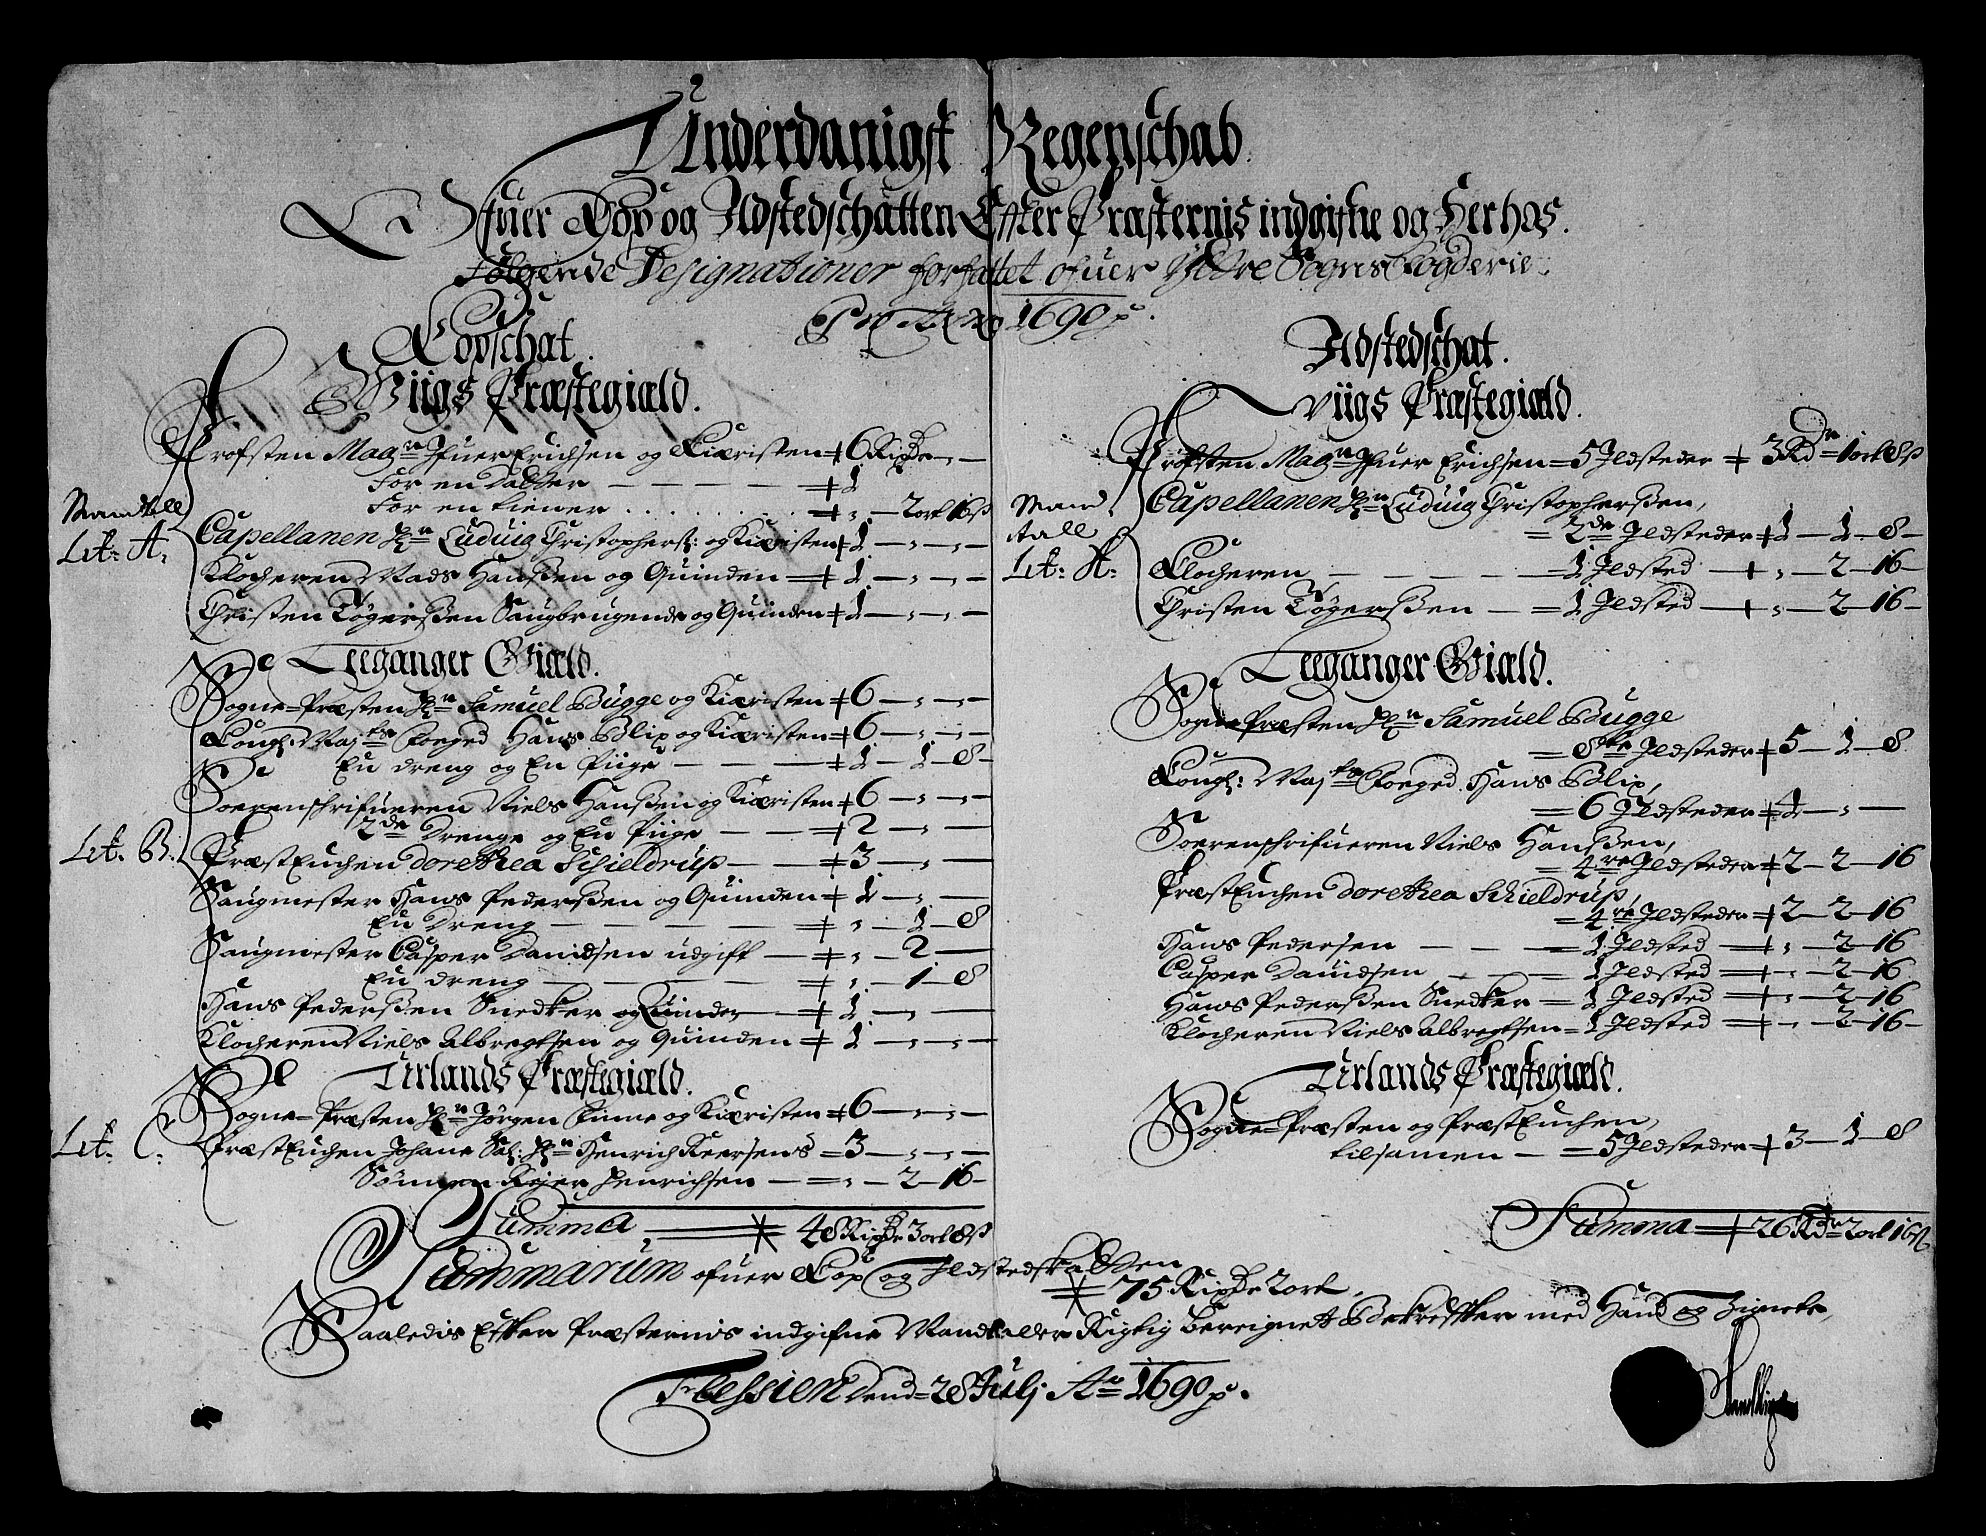 Underdanigst Regenschab
Ofuer Kop og Ildstedschatten Effter Præsternis indgifne og Herhos
følgende Designationer forfattet ofuer Yldre Sogns Fogderie
Pro Anno 1690
Kopschat.
Wiigs Præstegiæld.
Profsten Mag:r Ifuer Erichsen og Kiæristen + 6 Rixdr - -
For en datter - - - + 1
For en tiener . . . . . + „ - 2 ort 16 ß
Mandtall
Lit: A:
Capellanen Hr: Ludvig Christophers: og Kiæristen + 1 - „ - „ -
Klocheren Mads Hanssen og Quinden + 1 - „ - „ -
Christen Tøgerssen Saugbrugende og Quinden + 1 - „ - „ -
Leeganger Giæld.
Sogne-Præsten Hr: Samuel Bugge og Kiæristen + 6 - „ - „ -
Kongl: Maj:ts Foeged Hans Blix og Kiæristen + 6 - „ - „ -
En dreng og En Piige - - - + 1 - 1 - 8 -
Sorenschrifueren Niels Hanssen og Kiæristen + 6 - „ - „ -
2de Drenge og En Piige - - + 2 - „ -
Lit. B:
PræstEnchen dorethea Schieldrup - - + 3 - „ -
Saugmester Hans Pederssen og Quinden + 1 - „ -
En Dreng - - - - + „ - 1 - 8
Saugmester Casper Davidsen udgift - + „ - 2 -
En dreng - - - - + „ - 1 - 8
Hans Pederssen Snedker og Quinden - + 1 - „ -
Klocheren Niels Albregtsen og Quinden + 1 - „ - „ -
Urlands Præstegiæld.
Sogne-Præsten Hr: Jørgen Finne og Kiæristen + 6 - „ - „ -
Lit. C:
PræstEnchen Johane Sal: Hr: Henrich Keersens = 3 - „ - „ -
Sønnen Reier Henrichsen - = „ - 2 - 16 -
Summa 48 Rixdr 3 ort 8 ß
Ildstedschat.
Viigs Præstegiæld.
Profsten Mag:r Ifuer Erichsen = 5 Ildsteder + 3 Rdr 1 ort 8 ß
Mand
tall
Lit: A:
Capellanen Hr: Ludvig Christopherssen,
= 2de Ildsteder + 1 - 1 - 8 -
Klocheren - - - - = 1 Ildsted - + „ - 2 - 16 -
Christen Tøgerssen - = 1 Ildsted - + „ - 2 - 16 -
Leeganger Giæld.
Sogne Præsten Hr: Samuel Bugge
= 8te Ildsteder + 5 - 1 - 8
Kongl: Maj:ts Foeged Hans Blix,
= 6 Ildsteder + 4 - „ -
Sorenschrifueren Niels Hanssen,
= 4re Ildsteder + 2 - 2 - 16
PræstEnchen dorethea Schieldrup,
= 4re Ildsteder + 2 - 2 - 16
Hans Pedersen - - - = 1 Ildsted + „ - 2 - 16
Casper Davidsen - - = 1 Ildsted + „ - 2 - 16
Hans Pederssen Snedker = 1 Ildsted + „ - 2 - 16
Klocheren Niels Albregtsen = 1 Ildsted + „ - 2 - 16 -
Urlands Præstegiæld.
Sogne-Præsten og PræstEnchen,
tilsamen - = 5 Ildsteder + 3 - 1 - 8
Summa + 26 Rdr 2 ort 16 ß
Summarum ofuer Kop og Ildstedskatten
75 Rixdr 2 ort.
Saaledis Effter Præsternis indgifne Mandtaller Rigtig Bereignet Bekreffter med Haand og Zignete,
Flessien dend 28 Julj Ao 1690